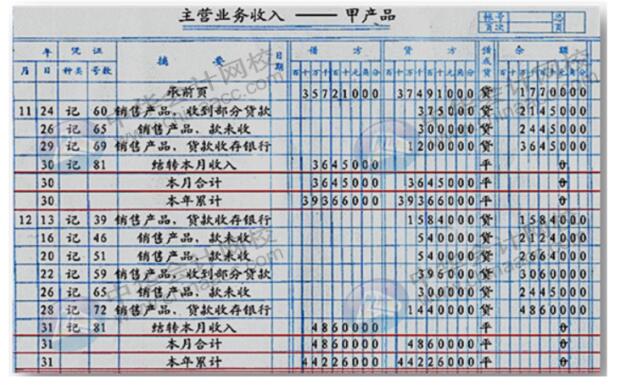 主营业务收入 —— 甲产品
帐号 总页
页次
年 凭证 摘要 日期 借方 贷方 借或贷 余额
月 日 种类 号数 百十万千百十元角分 百十万千百十元角分 百十万千百十元角分
承前页 35721000 37491000 贷 1770000
11 24 记 60 销售产品,收到部分贷款 375000 贷 2145000
26 记 65 销售产品,款未收 300000 贷 2445000
29 记 69 销售产品,贷款收存银行 1200000 贷 3645000
30 记 81 结转本月收入 3645000 平 0
30 本月合计 3645000 3645000 平 0
30 本年累计 39366000 39366000 平 0
12 13 记 39 销售产品,贷款收存银行 1584000 贷 1584000
16 记 46 销售产品,款未收 540000 贷 2124000
20 记 51 销售产品,款未收 540000 贷 2664000
22 记 59 销售产品,收到部分贷款 396000 贷 3060000
26 记 65 销售产品,款未收 360000 贷 2445000
28 记 72 销售产品,贷款收存银行 1440000 贷 4860000
31 记 81 结转本月收入 4860000 平 0
31 本月合计 4860000 4860000 平 0
31 本年累计 44226000 44226000 平 0